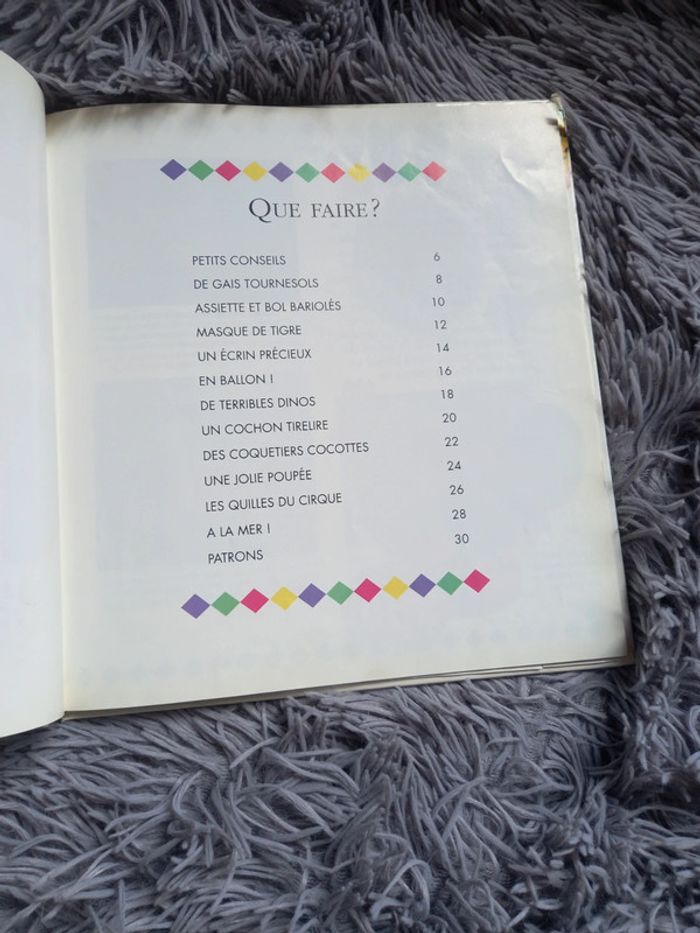 QUE FAIRE?
PETITS CONSEILS 6
DE GAIS TOURNESOLS 8
ASSIETTE ET BOL BARIOLÉS 10
MASQUE DE TIGRE 12
UN ÉCRIN PRÉCIEUX 14
EN BALLON ! 16
DE TERRIBLES DINOS 18
UN COCHON TIRELIRE 20
DES COQUETIERS COCOTTES 22
UNE JOLIE POUPÉE 24
LES QUILLES DU CIRQUE 26
A LA MER ! 28
PATRONS 30